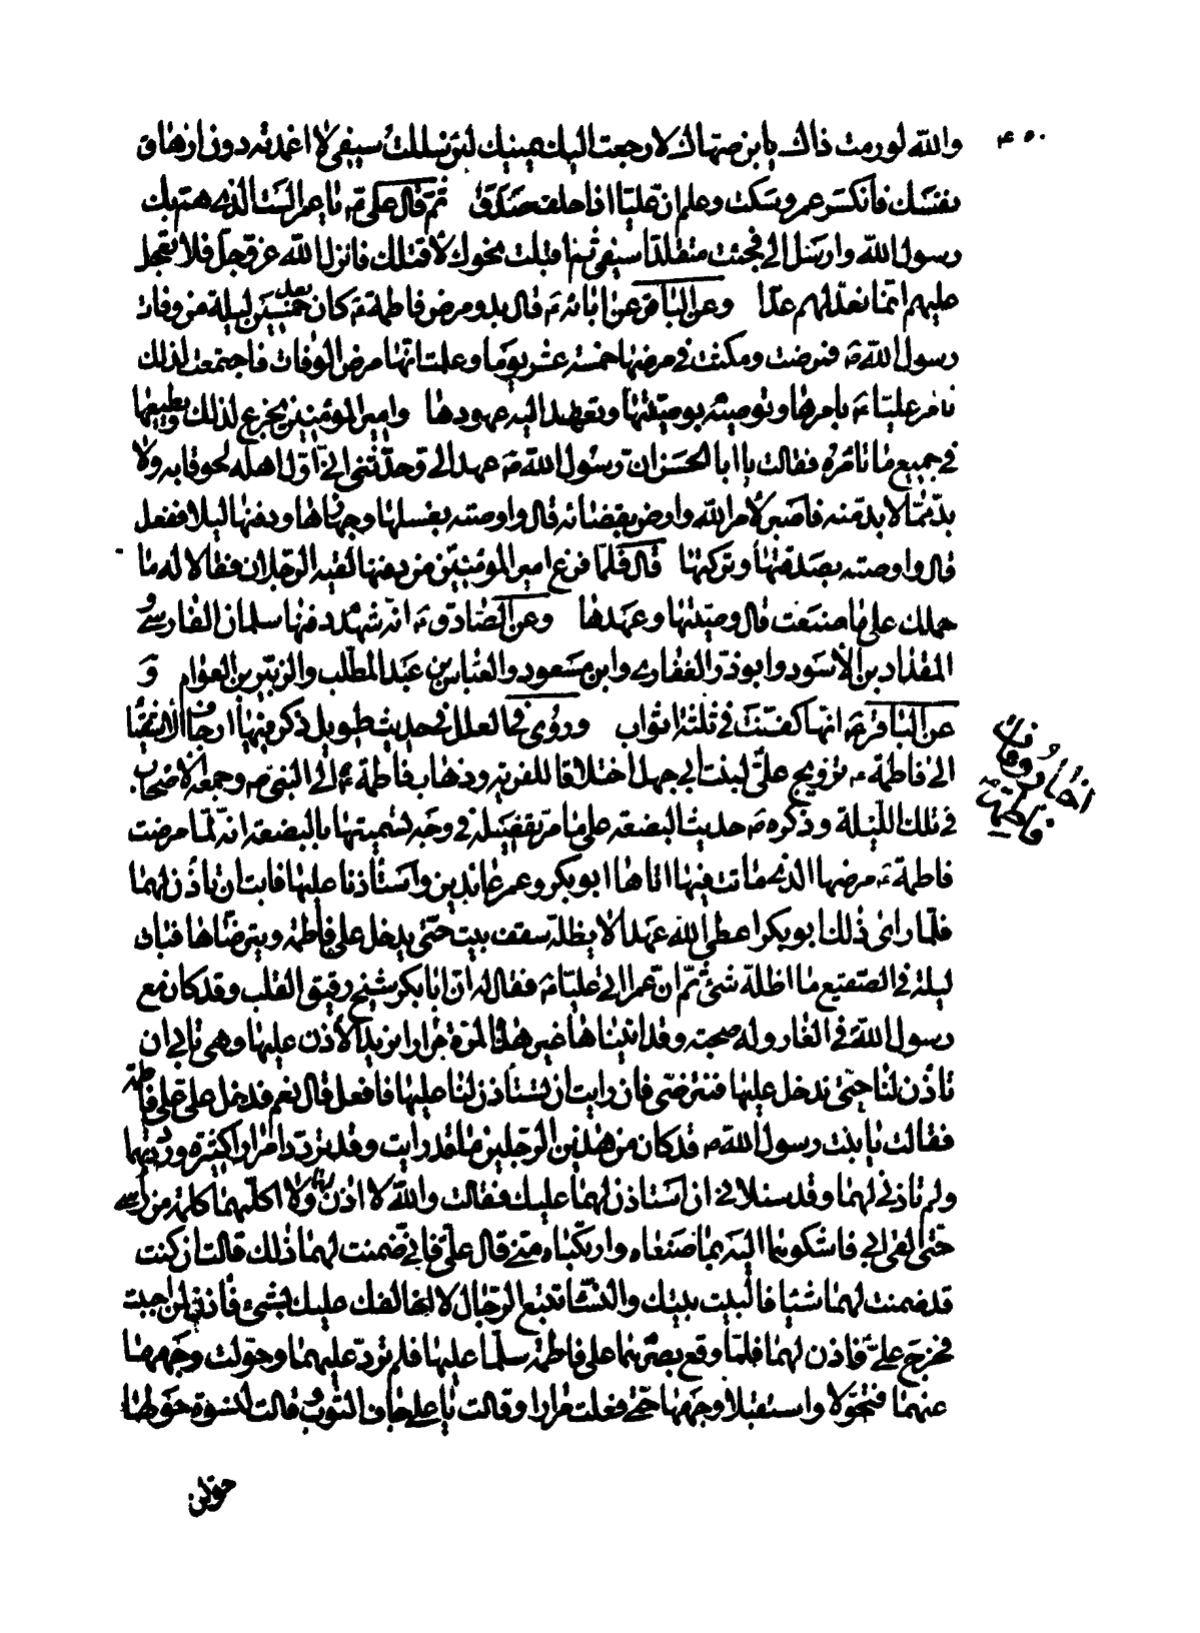 ٤٥٠
والله لو رمت ذاك يا بن صهاك لا رجعت اليك يمينك لئن سللت سيفى لا اغمدته دون ازهاق
نفسك فانكسر عمر وسكت وعلم ان عليّا اذا حلف صدق ثم قال على ع يا عمر الست الذى هم بك
رسول الله وارسل الى فجئت متقلدا سيفى ثم اقبلت نحوك لاقتلك فانزل الله عز وجل فلا تعجل
عليهم انما نعد لهم عدّا وعن الباقر عن ابائه ع قال بدو مرض فاطمة ع كان بعد خمسين ليلة من وفات
رسول الله ص فمرضت ومكثت فى مرضها خمسة عشر يوما وعلمت انها مرض الوفات فاجتمعت لذلك
تامر عليّا ع بامرها وتوصيه بوصيتها وتعهد اليه عهودها وامير المؤمنين يجزع لذلك ويطيعها
فى جميع ما تامره فقالت يا ابا الحسن ان رسول الله ص عهد الى وحدثنى انى اول اهله لحوقا به ولا
بد مما لا بد منه فاصبر لامر الله وارض بقضائه قال واوصته بغسلها وجهازها ودفنها ليلا ففعل
قال واوصته بصدقتها وتركتها قال فلما فرغ امير المؤمنين من دفنها لقيه الرجلان فقالا له ما
حملك على ما صنعت قال وصيتها وعهدها وعن الصادق ع انه شهد دفنها سلمان الفارسى و
المقداد بن الاسود وابو ذر الغفارى وابن مسعود والعباس بن عبد المطلب والزبير بن العوام و
عن الباقر ع انها كفنت فى ثلثة اثواب وروى فى العلل فى حديث طويل ذكر فيها ارجاف الاشقيا
الى فاطمة ع تزويج على لبنت ابى جهل اختلاقا للفرية وذهاب فاطمة ع الى النبى ص وجمعه الاصحاب
فى تلك الليلة وذكره ص حديث البضعة على ما مر تفصيله فى وجه تسميتها بالبضعة انه لما مرضت
فاطمة ع مرضها الذى ماتت فيها اتاها ابو بكر وعمر عائدين واستاذنا عليها فابت ان تاذن لهما
فلما راى ذلك ابو بكر اعطى الله عهدا لا يظله سقف بيت حتى يدخل على فاطمة ويترضاها فبات
ليلة فى الصقيع ما اظله شئ ثم ان عمر اتى عليّا ع فقال له ان ابا بكر شيخ رقيق القلب وقد كان مع
رسول الله فى الغار وله صحبة وقد اتيناها غير هذا المرة مرارا نريد الاذن عليها وهى تابى ان
تاذن لنا حتى ندخل عليها فنترضى فان رايت ان تستاذن لنا عليها فافعل قال نعم فدخل على ع على فاطمة
فقالت يا بنت رسول الله ص قد كان من هذين الرجلين ما قد رايت وقد تردد امرارا كثيرة ورددتهما
ولم تاذنى لهما وقد سئلانى ان استاذن لهما عليك فقالت والله لا اذن لهما ولا اكلمهما كلمة من راسى
حتى القى ابى فاشكوهما اليه بما صنعاه وارتكباه منى قال على فانى ضمنت لهما ذلك قالت ان كنت
قد ضمنت لهما شيئا فالبيت بيتك والنساء تتبع الرجال لا اخالف عليك بشئ فأذن لمن احببت
فخرج على فاذن لهما فلما وقع بصرهما على فاطمة سلما عليها فلم ترد عليهما وحولت وجهها
عنهما فتحولا واستقبلا وجهها حتى فعلت مرارا وقالت يا على جاف الثوب وقالت لنسوة حولها
اخبار وفات
فاطمة ع
حولن